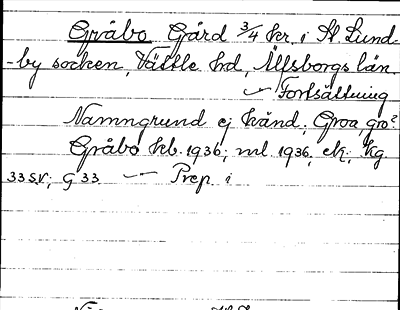 Gråbo Gård 3/4 kr. i St Lund-
-by socken, Vättle hd, Älfsborgs län.
~ Fortsättning
Namngrund ej känd; Groa, gro?
Gråbo kb. 1936; ml. 1936; ek; kg
33 SV; G 33 — Prep i